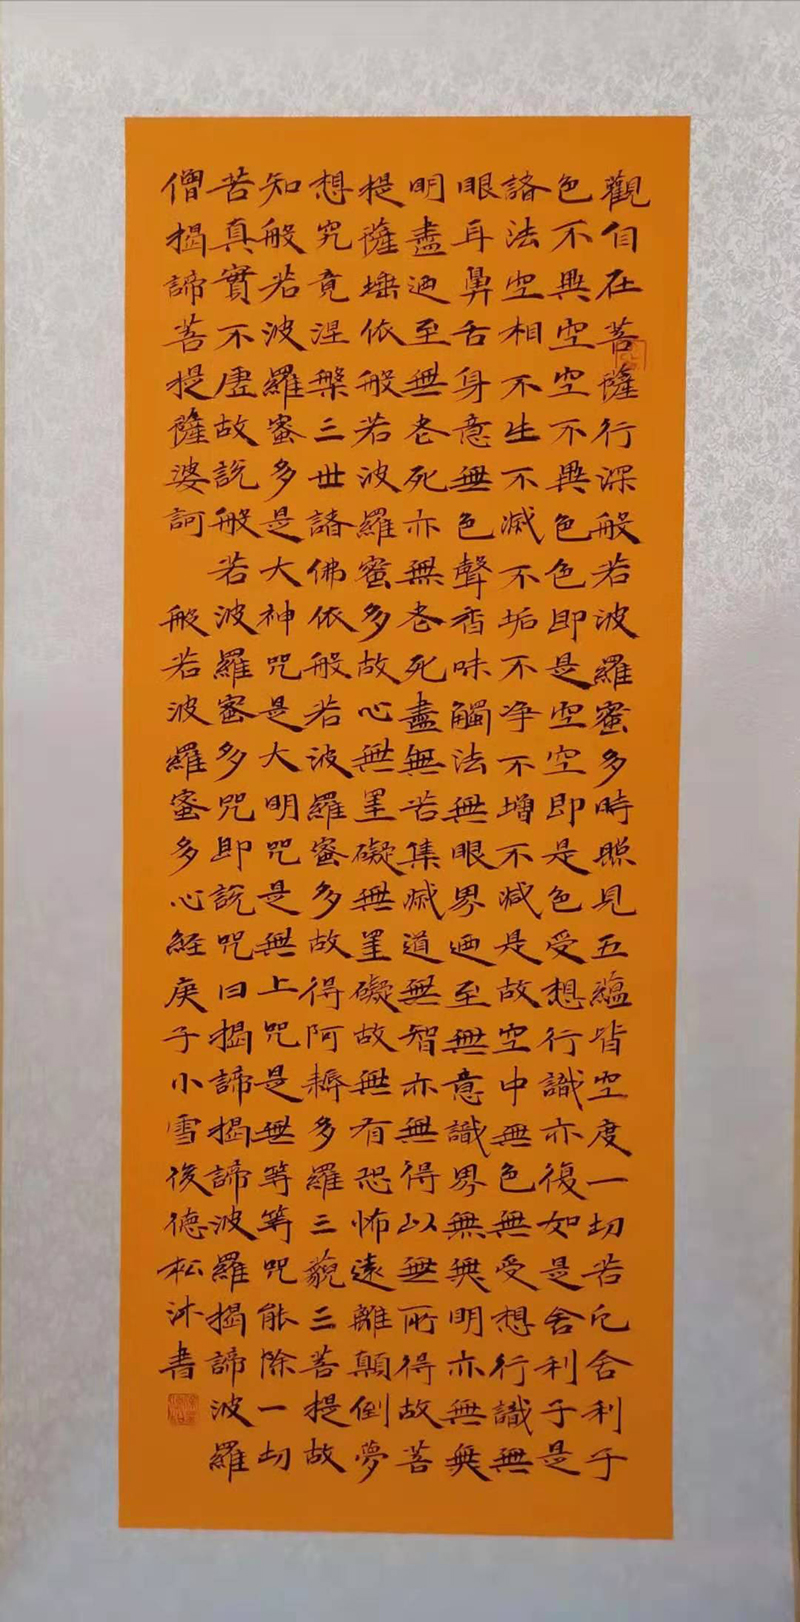 觀自在菩薩行深般若波羅蜜多時照見五蘊皆空度一切苦厄舍利子
色不異空空不異色色即是空空即是色受想行識亦復如是舍利子是
諸法空相不生不滅不垢不净不增不減是故空中無色無受想行識無
眼耳鼻舌身意無色聲香味觸法無眼界迺至無意識界無無明亦無無
明盡迺至無老死亦無老死盡無苦集滅道無智亦無得以無所得故菩
提薩埵依般若波羅蜜多故心無罣礙無罣礙故無有恐怖遠離顛倒夢
想究竟涅槃三世諸佛依般若波羅蜜多故得阿耨多羅三藐三菩提故
知般若波羅蜜多是大神咒是大明咒是無上咒是無等等咒能除一切
苦真實不虛故說般若波羅蜜多咒即說咒曰揭諦揭諦波羅揭諦波羅
僧揭諦菩提薩婆訶 般若波羅蜜多心經庚子小雪後德松沐書